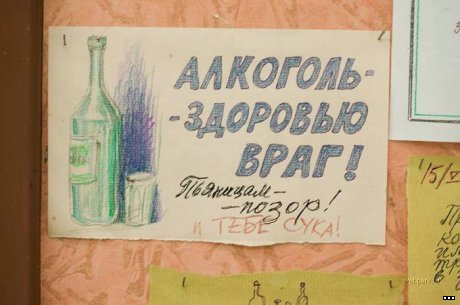 АЛКОГОЛЬ-
-ЗДОРОВЬЮ
ВРАГ!
Пьяницам-
-позор!
И ТЕБЕ СУКА!
1/5/V